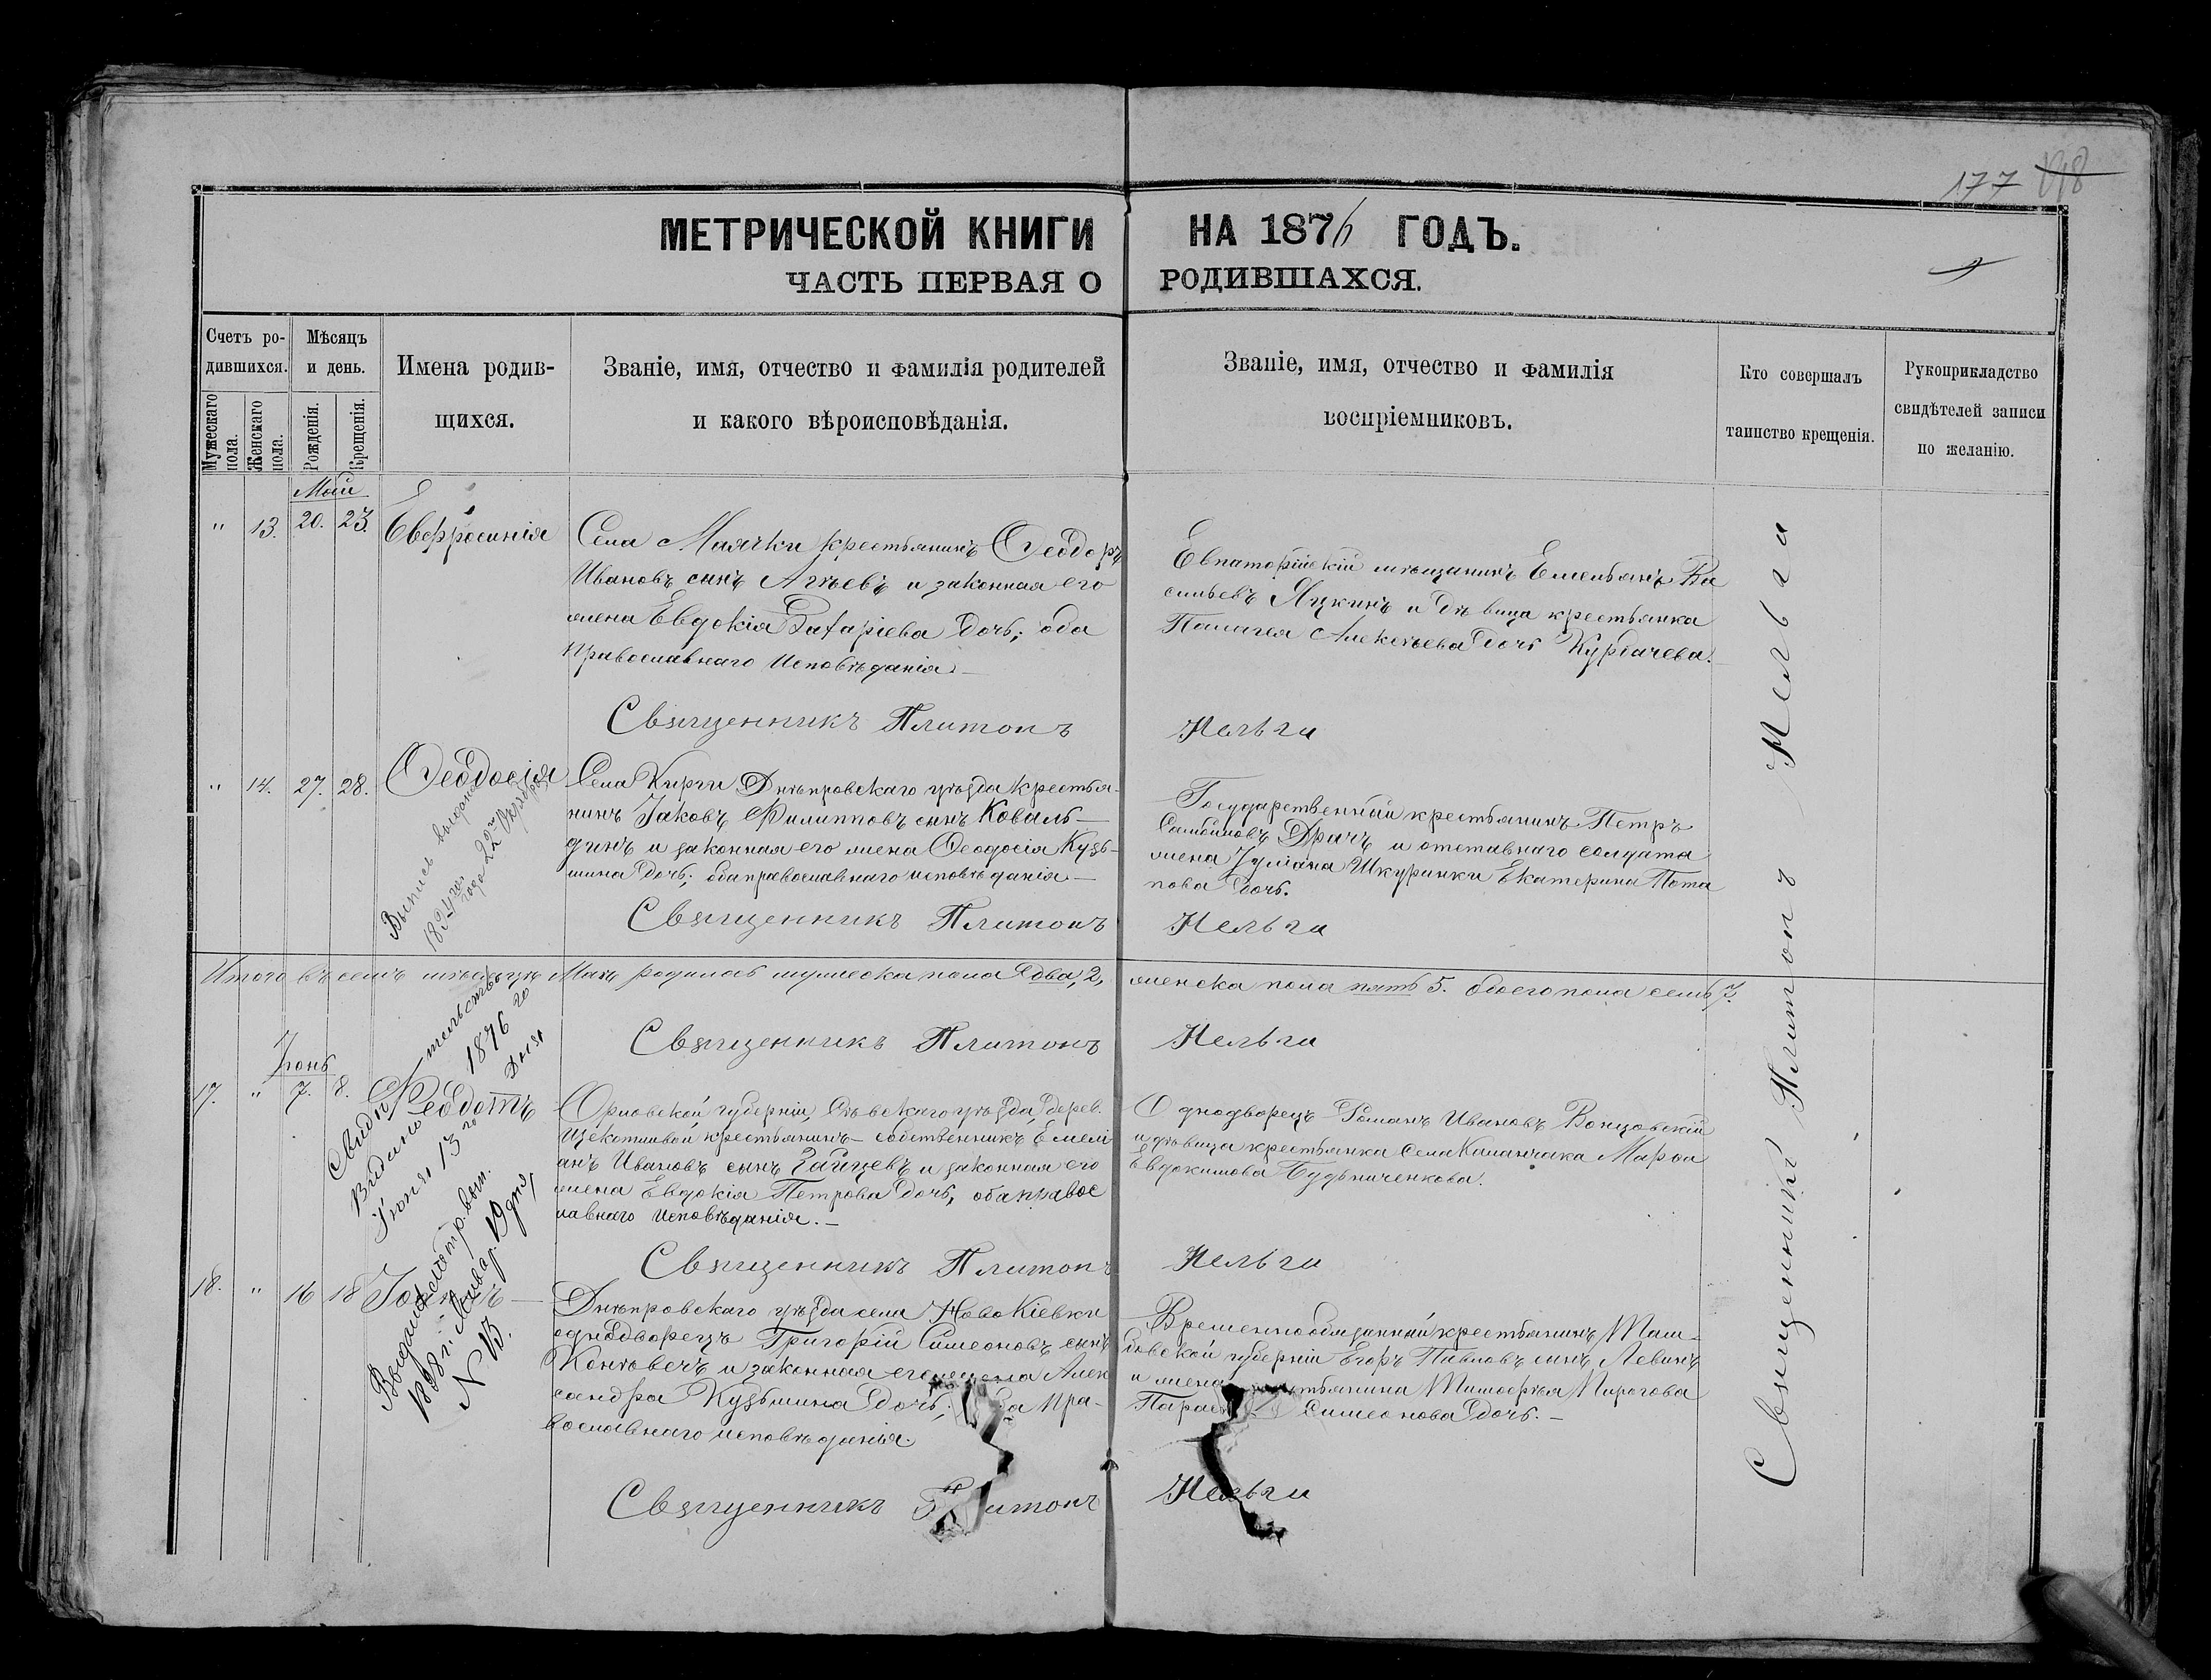 177 198
МЕТРИЧЕСКОЙ КНИГИ НА 1876 ГОДЪ.
ЧАСТЬ ПЕРВАЯ О РОДИВШАХСЯ.
Счетъ ро-
дившихся.
Мужескаго пола.
Женскаго пола.
Мѣсяцъ
и день.
Рожденія.
Крещенія.
Имена родив-
шихся.
Званіе, имя, отчество и фамилія родителей
и какого вѣроисповѣданія.
Званіе, имя, отчество и фамилія
воспріемниковъ.
Кто совершалъ
таинство крещенія.
Рукоприкладство
свидѣтелей записи
по желанію.
Май
" 13. 20. 23. Евфросинія
Села Маячки крестьянинъ Ѳеодоръ
Ивановъ сынъ Агѣевъ и законная его
жена Евдокія Захаріева дочь; оба
православнаго исповѣданія.
Евпаторійскій мѣщанинъ Емельянъ Ва
сильевъ Яцкинъ и дѣвица крестьянка
Палагея Алексѣева дочь Курбачева.
Священникъ Платонъ Нельга
" 14. 27. 28. Ѳеодосія
Выпись выдана
22го
Села Кирги Днѣпровскаго уѣзда крестья-
нинъ Іаковъ Филипповъ сынъ Коваль-
динъ и законная его жена Ѳеодосія Кузь-
мина дочь; оба православнаго исповѣданія
Государственный крестьянинъ Петръ
Самойловъ Драчъ и отставнаго солдата
жена Іуліана Шкуринки Екатерина Пота
пова дочь.
Священникъ Платонъ Нельга
Итого въ семъ мѣсяцѣ Маѣ родилось мужеска пола два, 2, женска пола пять 5. обоего пола семь 7.
Священникъ Платонъ Нельга
Іюнь
17. " 7. 8. Ѳеодотъ
Свидѣтельство
Видано 1876го
Іюня 13го Дня
Орловской губерніи, Сѣвскаго уѣзда, дерев.
Щекотливой крестьянинъ-собственникъ Емелі
анъ Ивановъ сынъ Зайцевъ и законная его
жена Евдокія Петрова дочь, оба правос
лавнаго исповѣданія.
Однодворецъ Романъ Ивановъ Вонцовскій
и дѣвица крестьянка села Каланчака Марѳа
Евдокимова Будьниченкова.
Священникъ Платонъ Нельга
18. " 16 18
Выдана метр. вып.
1898 г. Январ. 19 дня,
N 13.
Днѣпровскаго уѣзда села Ново Кіевки
однодворецъ Григорій Симеоновъ сынъ
и законная его жена Алек
сандра Кузьмина дочь; оба пра-
вославнаго исповѣданія.
Временнообязанный крестьянинъ Там-
бовской губерніи Егоръ Павловъ сынъ Левинъ
и жена крестьянина Тимоѳѣя Пирогова
Симеонова дочь.
Священникъ Платонъ Нельга
Священникъ Платонъ Нельга